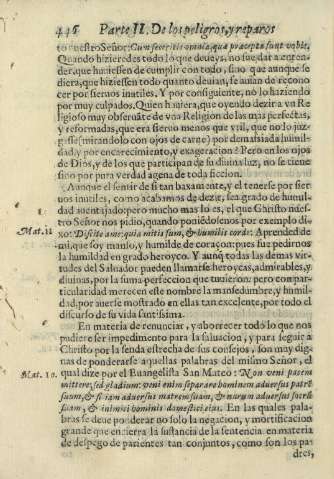 446 Parte II. De los peligros, y reparos
to nuestro Señor: Cum feceritis omnia, quæ præcepta sunt vobis.
Quando hizieredes todo lo que deueys, no fue, dar a enten-
der, que huuiessen de cumplir con todo, sino que aunque se
diera, que hiziessen todo quanto deuian, se auian de recono
cer por sieruos inutiles. Y por consiguiente, no lo haziendo
por muy culpados. Quien huuiera, que oyendo dezir a vn Re
ligioso muy obseruãte de vna Religion de las mas perfectas,
y reformadas, que era sieruo menos que vtil, que no lo juz-
gasse (mirandolo con ojos de carne) por demasiada humil-
dad, y por encarecimiento, y exageracion? Pero en los ojos
de Dios, y de los que participan de su diuina luz, no se tiene
sino por pura verdad agena de toda ficcion.
Aunque el sentir de si tan baxamente, y el tenerse por sier
uos inutiles, como acabamos de dezir, sea grado de humil-
dad auentajado: pero mucho mas lo es, el que Christo nues-
tro Señor nos pidio, quando poniẽdosenos por exemplo di-
Mat. 11 xo: Discite a me quia mitis sum, & humilis corde: Aprended de
mi, que soy manso, y humilde de coraçon: pues fue pedirnos
la humildad en grado heroyco. Y aunq̃ todas las demas vir-
tudes del Saluador pueden llamarse heroycas, admirables, y
diuinas, por la suma perfeccion que tuuieron: pero con par-
ticularidad merecen este nombre la mansedumbre, y humil-
dad, por auerse mostrado en ellas tan excelente, por todo el
discurso de su vida santissima.
En materia de renunciar, y aborrecer todo lo que nos
pudiere ser impedimento para la saluacion, y para seguir a
Christo por la senda estrecha de sus consejos, son muy dig-
nas de ponderarse aquellas palabras del mismo Señor, el
Mat. 10. qual dize por el Euangelista San Mateo: Non veni pacem
mittere, sed gladium: veni enim separare hominem aduersus patrẽ
suum, & filiam aduersus matrem suam, & nurum aduersus socrũ
suam, & inimici hominis domestici eius. En las quales pala-
bras se deue ponderar no solo la negacion, y mortificacion
grande que encierra la sustancia de la sentencia en materia
de despego de parientes tan conjuntos, como son los pa-
dres,